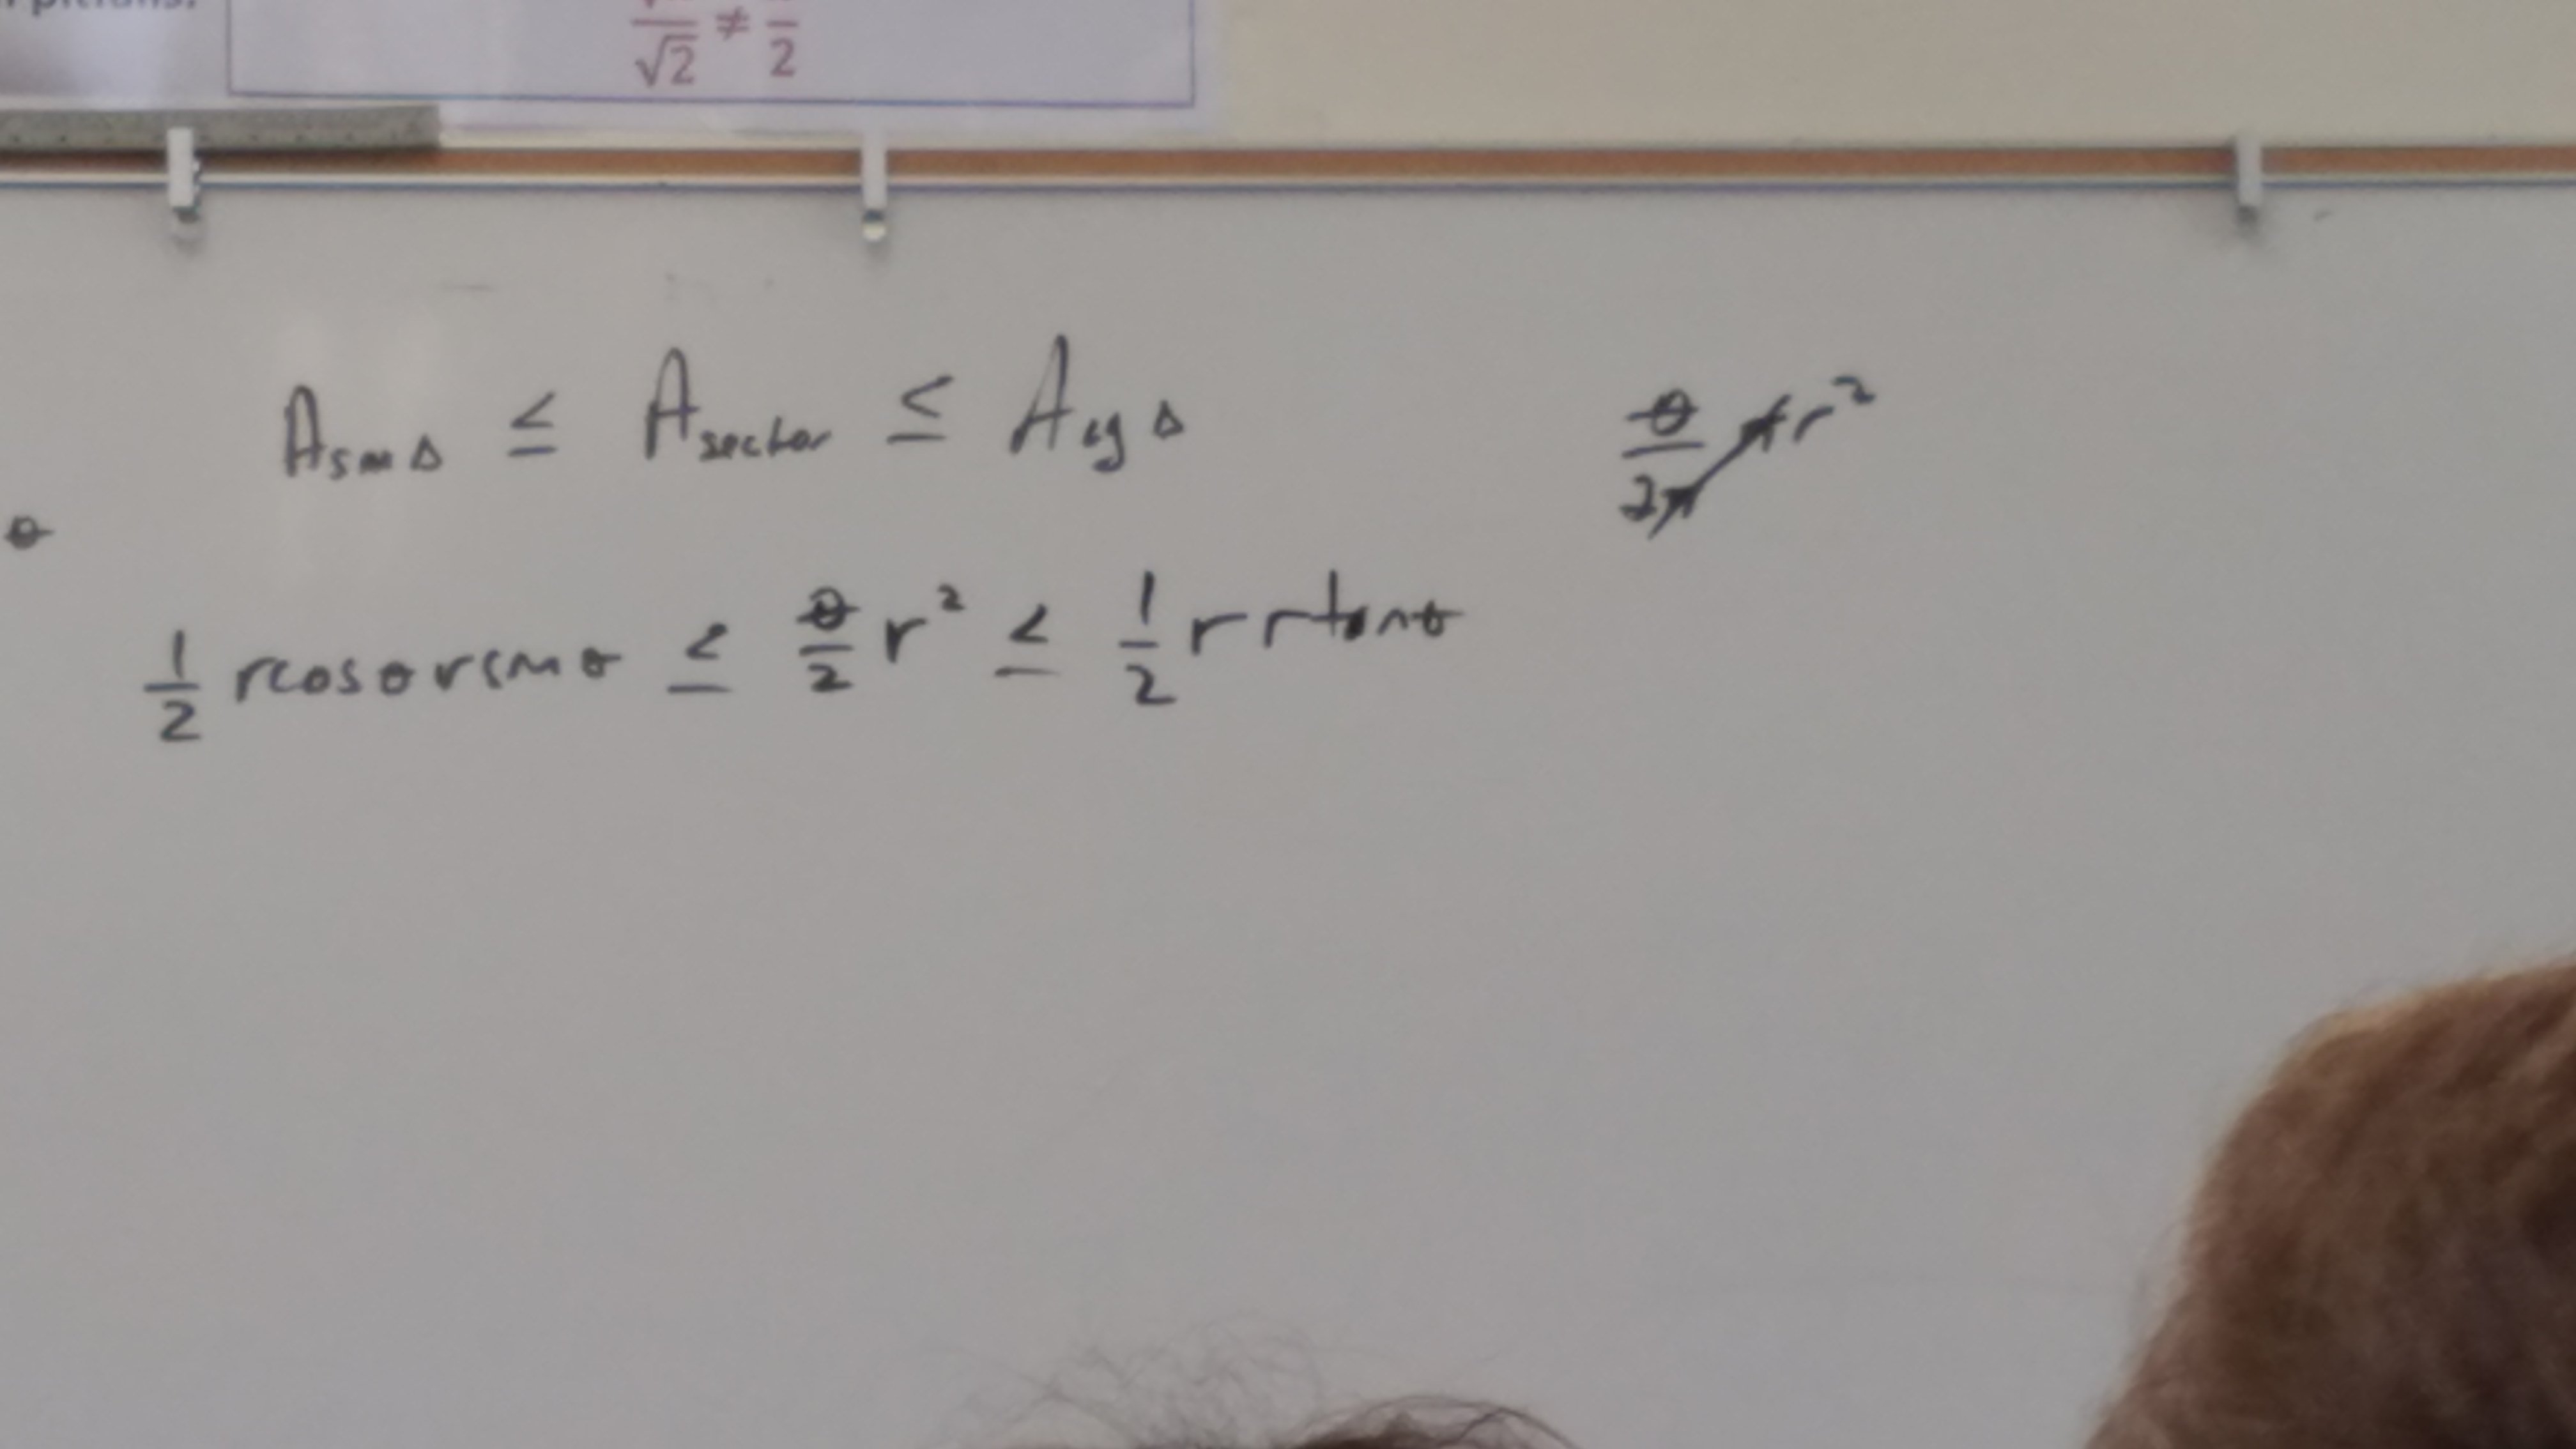 √2 ≠ 2
A sm Δ ≤ A sector ≤ A lg Δ
θ/2π πr²
θ
1/2 rcosθ rsinθ ≤ θ/2 r² ≤ 1/2 r rtanθ